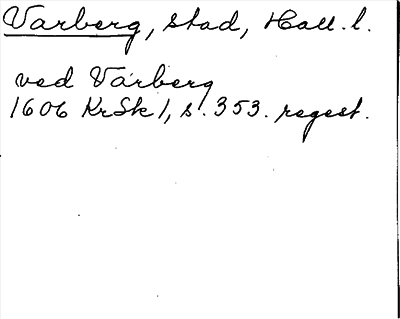 Varberg, stad, Hall. l.
ved Varberg
1606 KrSk 1, s. 353. regest.